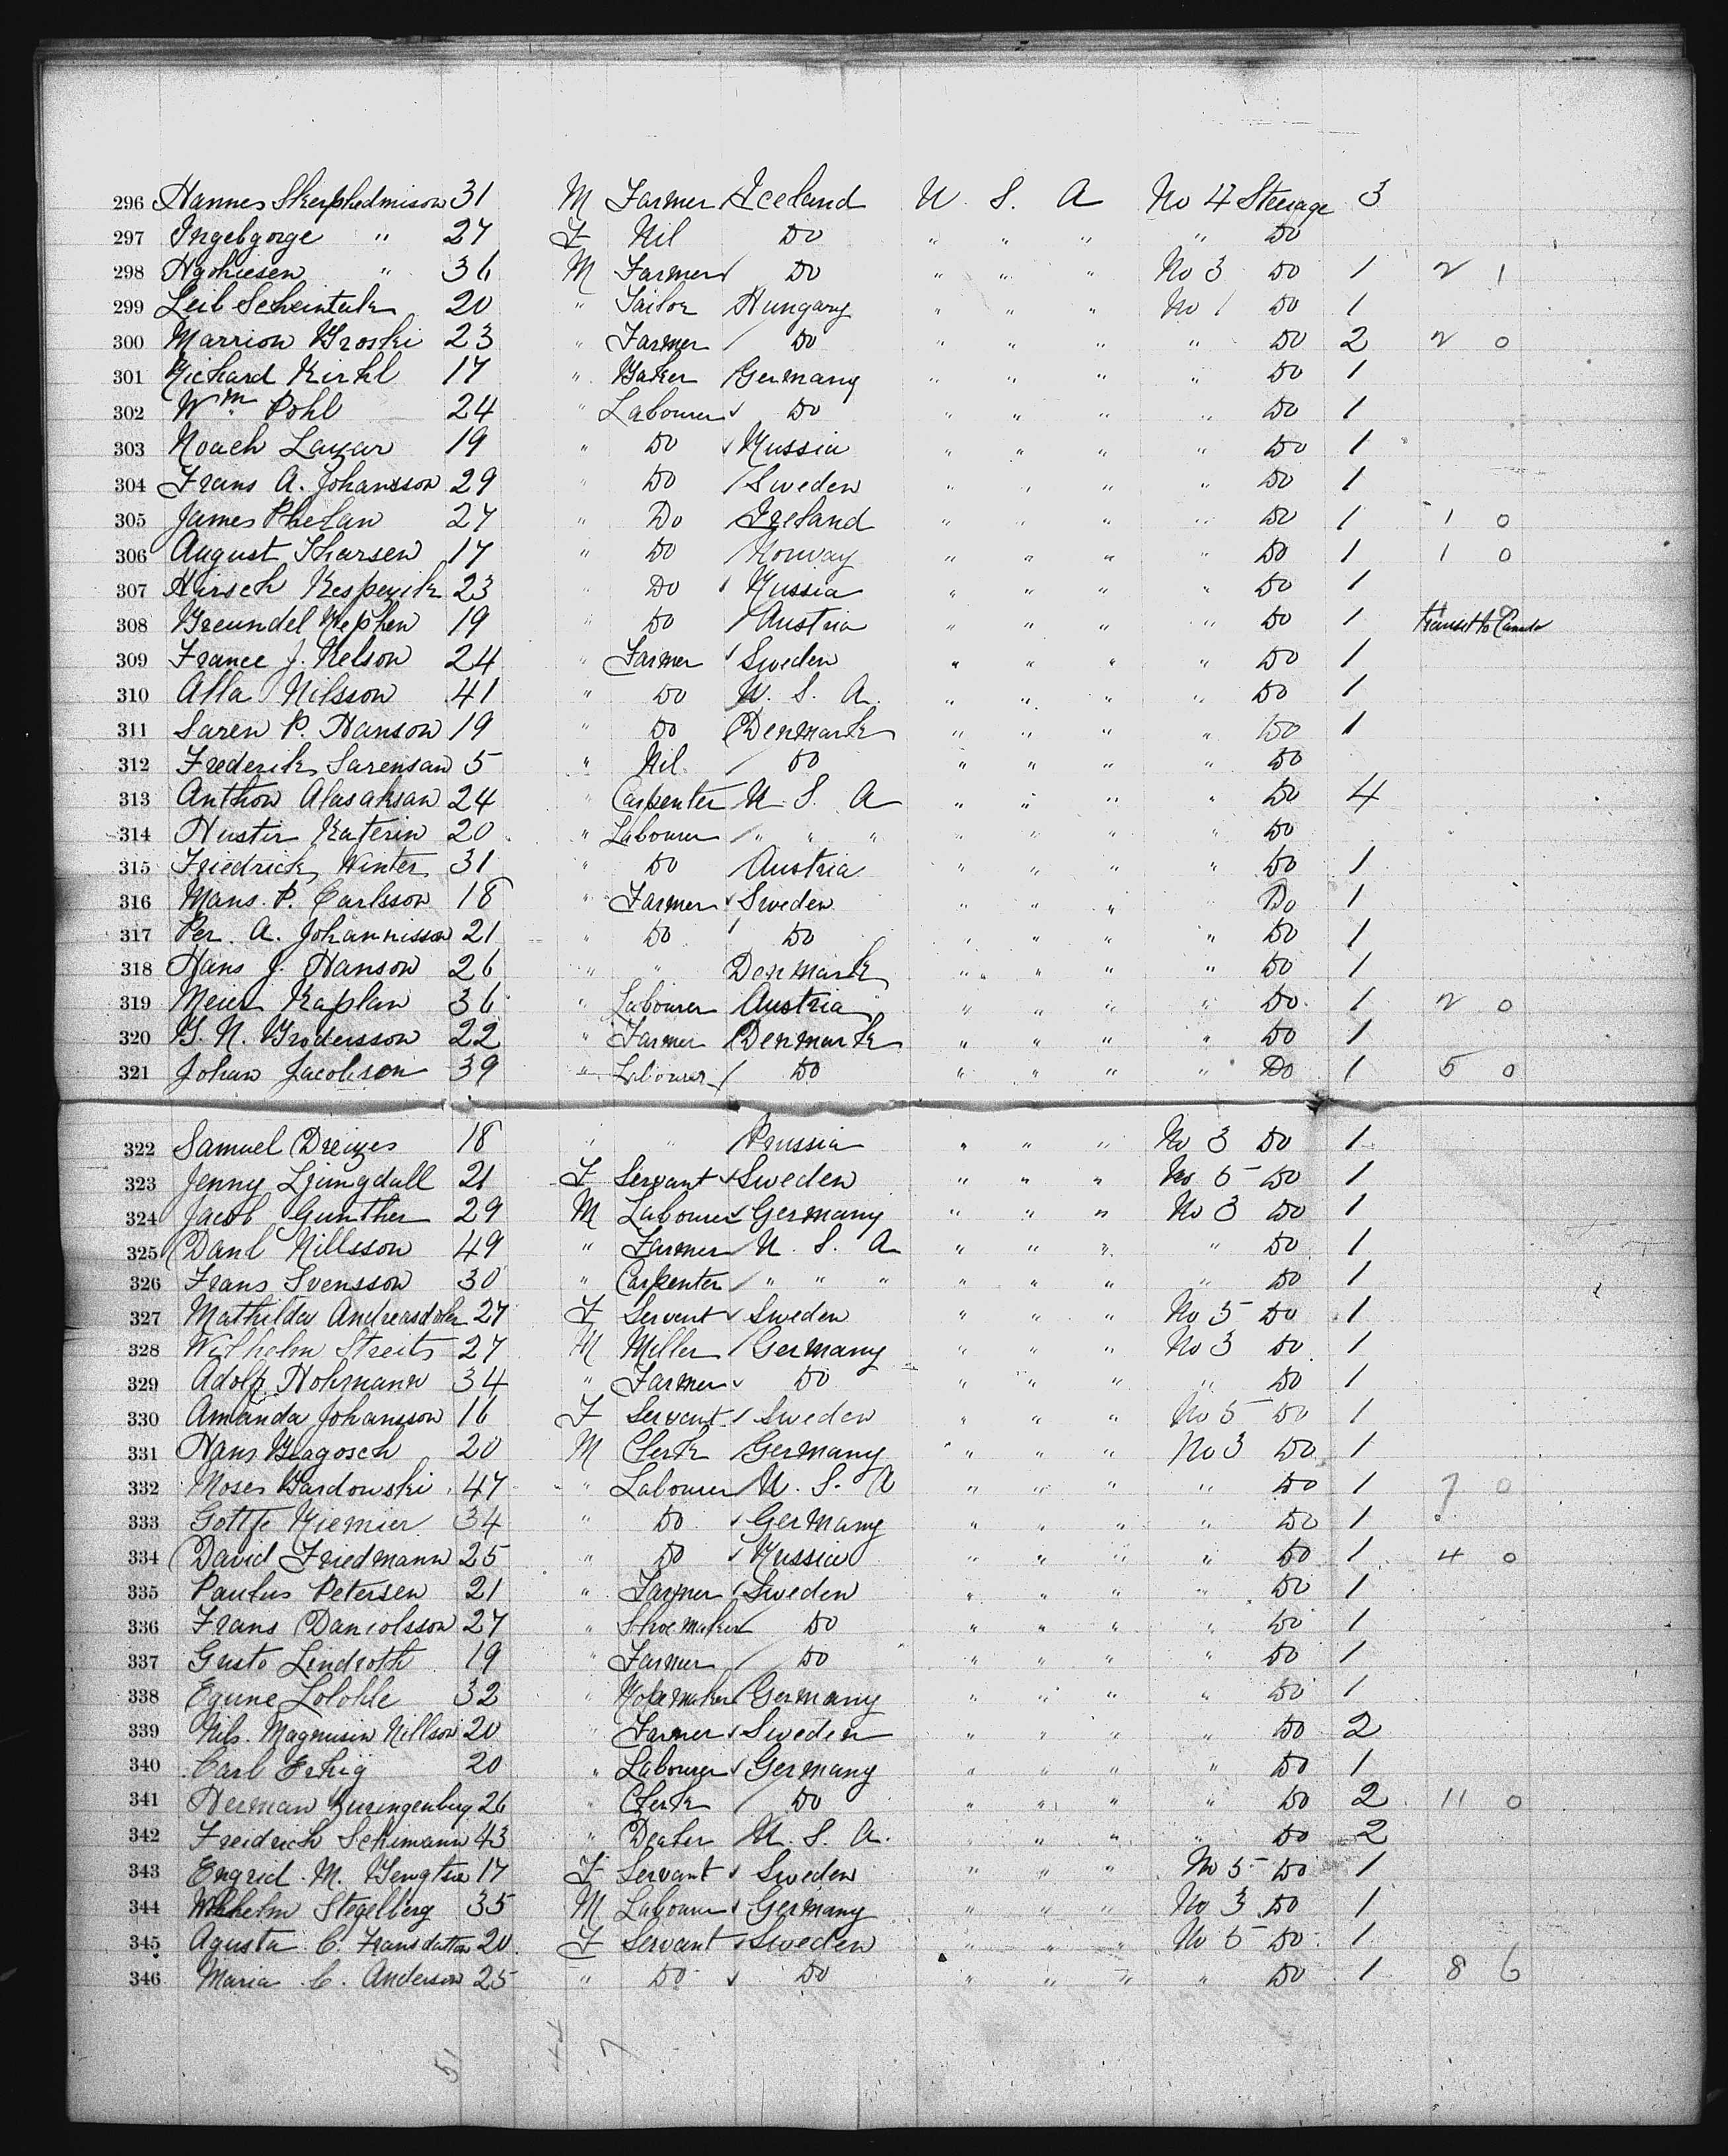 296 Hannes Skerphedmison 31 M Farmer Iceland U. S. A No 4 Steerage 3
297 Ingebgorge " 27 F Nil Do " " " " Do
298 36 M Farmer Do " " " No 3 Do 1 2 1
299 Leib Scheintuk 20 " Tailor Hungary " " " No 1 Do 1
300 Marrion Broski 23 " Farmer Do " " " " Do 2 2 0
301 Richard Kirkl 17 " Baker Germany " " " " Do 1
302 Wm Pohl 24 " Labourer Do " " " " Do 1
303 Noach Layzar 19 " Do Russia " " " " Do 1
304 Frans A. Johansson 29 " Do Sweden " " " " Do 1
305 James Phelan 27 " Do Ireland " " " " Do 1 1 0
306 August Tharsen 17 " Do Norway " " " " Do 1 1 0
307 Hirsch Respezik 23 " Do Russia " " " " Do 1
308 Breundel Nephen 19 " Do Austria " " " " Do 1 Transit to Canada
309 France J. Nelson 24 " Farmer Sweden " " " " Do 1
310 Alla Nilsson 41 " Do U. S. A. " " " " Do 1
311 Saren P. Hanson 19 " Do Denmark " " " " Do 1
312 Frederik Sarensan 5 " Nil Do " " " " Do
313 Anthon Alasaksan 24 " Carpenter U. S. A " " " " Do 4
314 Hustir Katerin 20 " Labourer " " " " " " " Do
315 Friedrick Winter 31 " Do Austria " " " " Do 1
316 Mans. P. Carlsson 18 " Farmer Sweden " " " " Do 1
317 Per. A. Johannisson 21 " Do Do " " " " Do 1
318 Hans J. Hanson 26 " " Denmark " " " " Do 1
319 Meier Kaplan 36 " Labourer Austria " " " " Do 1 2 0
320 G. N. Brodersson 22 " Farmer Denmark " " " " Do 1
321 Johan Jacobson 39 " Labourer Do " " " " Do 1 5 0
322 Samuel Dreizes 18 " " Prussia " " " No 3 Do 1
323 Jenny Ljungdall 21 F Servant Sweden " " " No 5 Do 1
324 Jacob Gunther 29 M Labourer Germany " " " No 3 Do 1
325 Danl Nillsson 49 " Farmer U. S. A " " " " Do 1
326 Frans Svensson 30 " Carpenter " " " " " " " Do 1
327 Mathilda Andreasdoter 27 F Servant Sweden " " " No 5 Do 1
328 Wilhelm Streits 27 M Miller Germany " " " No 3 Do 1
329 Adolf Hohmann 34 " Farmer Do " " " " Do 1
330 Amanda Johansson 16 F Servant Sweden " " " No 5 Do 1
331 Hans Bragosch 20 M Clerk Germany " " " No 3 Do 1
332 Moses Bardowski 47 " Labourer U. S. A " " " " Do 1 7 0
333 Gottf Riemier 34 " Do Germany " " " " Do 1
334 David Friedmann 25 " Do Russia " " " " Do 1 4 0
335 Paulus Petersen 21 " Farmer Sweden " " " " Do 1
336 Frans Danielsson 27 " Shoemaker Do " " " " Do 1
337 Gusto Lindroth 19 " Farmer Do " " " " Do 1
338 Egune Lolohle 32 " Germany " " " " Do 1
339 Nils. Magnusin Nillson 20 " Farmer Sweden " " " " Do 2
340 Carl Erkig 20 " Labourer Germany " " " " Do 1
341 Herman Zuringenburg 26 " Clerk Do " " " " Do 2 11 0
342 Freidrich Schimann 43 " Dealer U. S. A. " " " " Do 2
343 Engrid. M. Bengtson 17 F Servant Sweden " " " No 5 Do 1
344 Wilhelm Stegelberg 35 M Labourer Germany " " " No 3 Do 1
345 Agusta C. Fransdatter 20 F Servant Sweden " " " No 5 Do 1
346 Maria C. Anderson 25 " Do Do " " " " Do 1 8 6
51 44 7